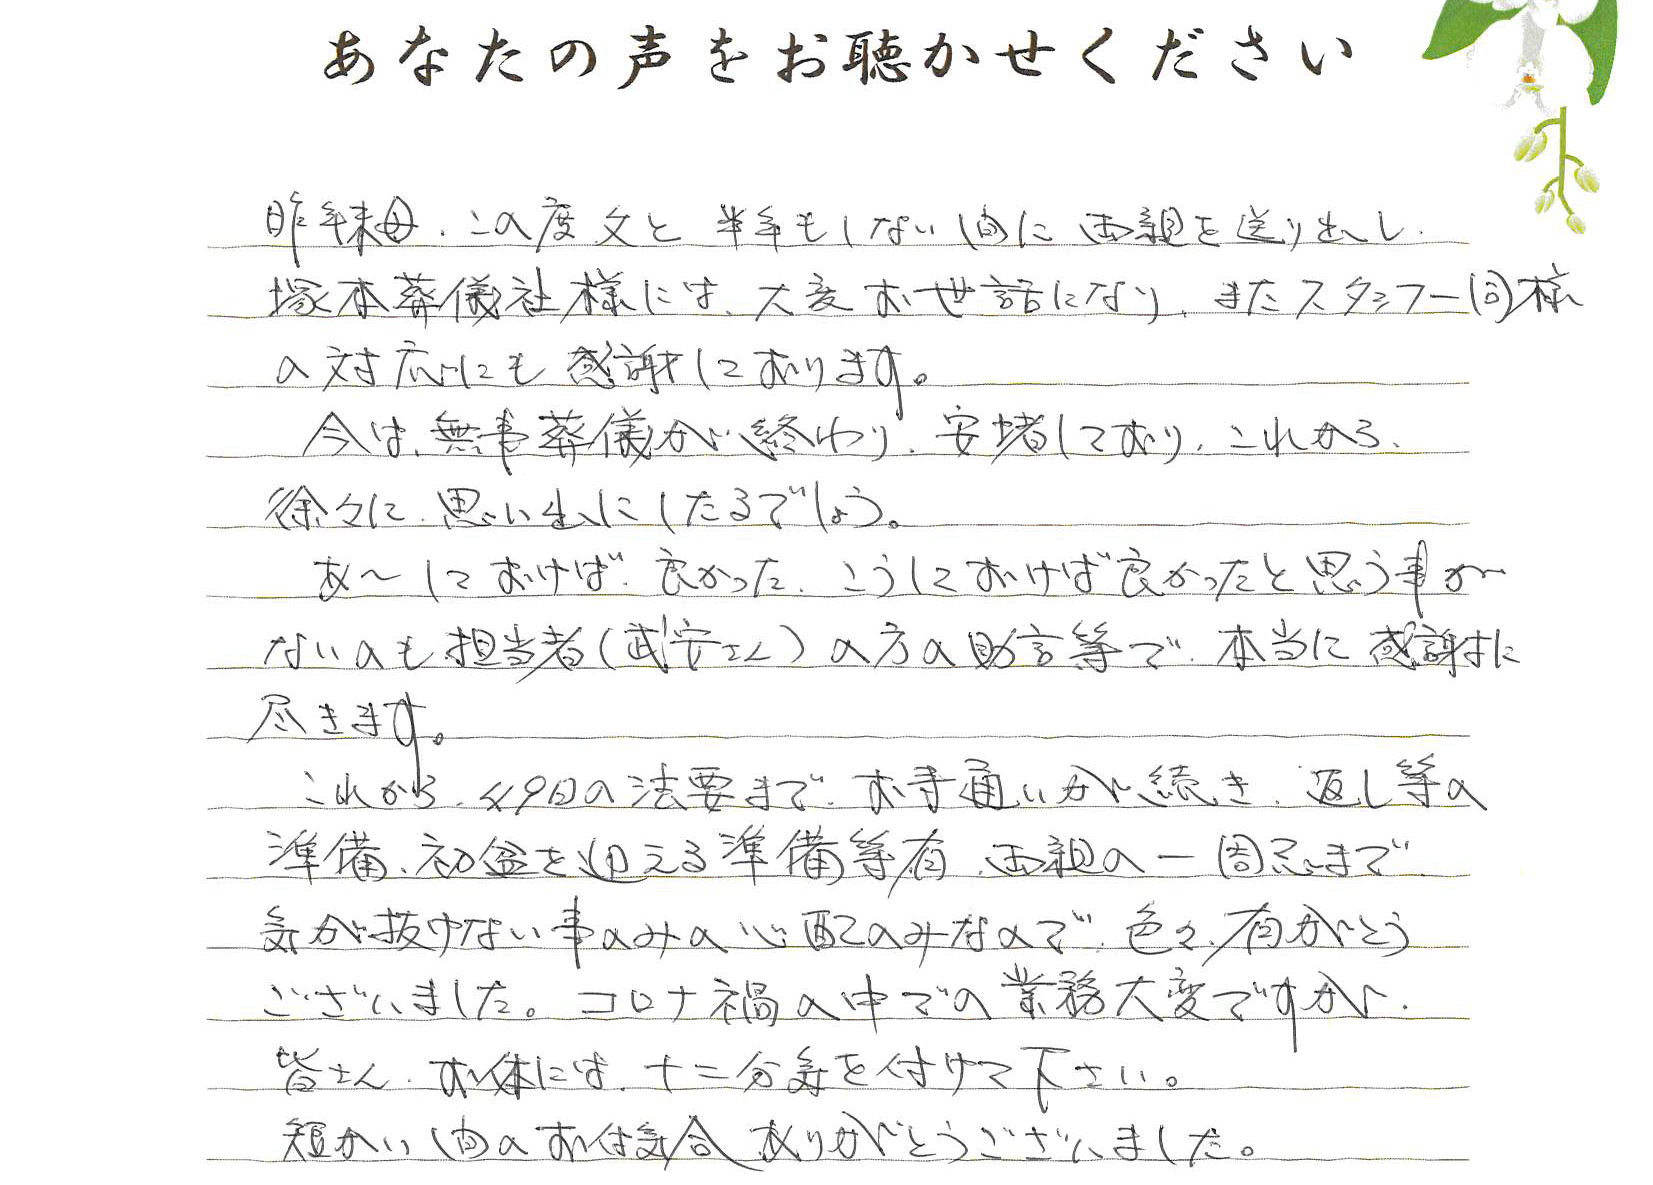 あなたの声をお聴かせください
昨年末母、この度父と半年もしない間に両親を送り出し、
塚本葬儀社様には、大変お世話になり、またスタッフ一同様
の対応にも感謝しております。
今は、無事葬儀が終わり、安堵しており、これから、
徐々に、思い出にしたるでしょう。
あ〜しておけば、良かった、こうしておけば良かったと思う事が
ないのも担当者(武安さん)の方の助言等で、本当に感謝に
尽きます。
これから、49日の法要まで、お寺通いが続き、返し等の
準備、初盆を迎える準備等有、両親の一周忌まで
気が抜けない事のみの心配のみなので、色々、有がとう
ございました。コロナ禍の中での業務大変ですが、
皆さん、お体には、十二分気を付けて下さい。
短かい間のお付気合ありがとうございました。